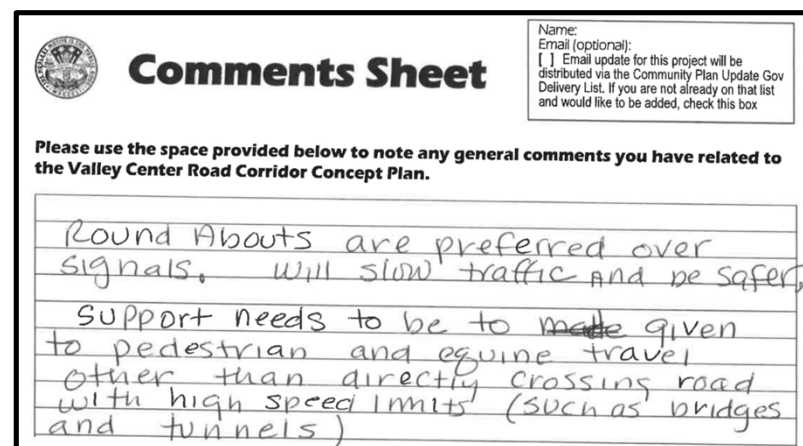 Comments Sheet
Name:
Email (optional):
[ ] Email update for this project will be
distributed via the Community Plan Update Gov
Delivery List. If you are not already on that list
and would like to be added, check this box
Please use the space provided below to note any general comments you have related to
the Valley Center Road Corridor Concept Plan.
Round Abouts are preferred over
signals. Will slow traffic And be safer,
Support needs to be to made given
to pedestrian and equine travel
other than directly crossing road
with high speed limits (such as bridges
and tunnels)